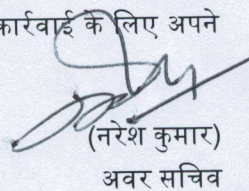 कार्रवाई के लिए अपने
(नरेश कुमार)
अवर सचिव